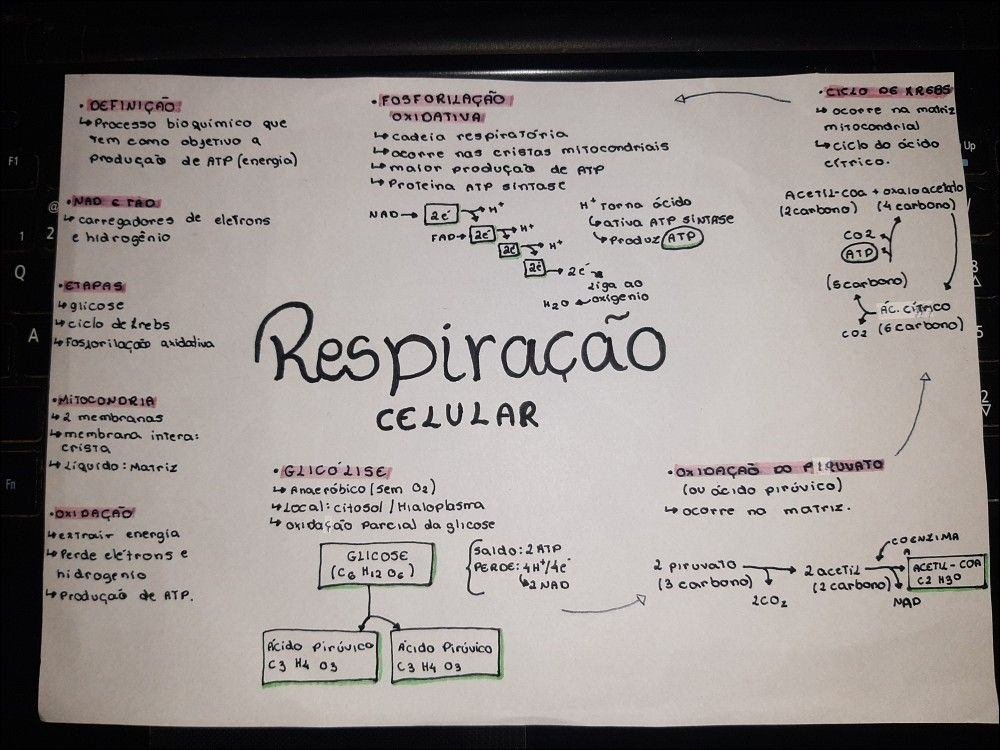 • DEFINIÇÃO:
↳ Processo bioquímico que
tem como objetivo a
produção de ATP (energia)
• NAD E FAD
↳ carregadores de eletrons
e hidrogênio
• ETAPAS
↳ glicose
↳ ciclo de krebs
↳ Fosforilação oxidativa
• MITOCONDRIA
↳ 2 membranas
↳ membrana intera:
crista
↳ Liquido: Matriz
• OXIDAÇÃO
↳ extrair energia
↳ Perde elétrons e
hidrogenio
↳ Produção de ATP.
• FOSFORILAÇÃO
OXIDATIVA
↳ cadeia respiratória
↳ ocorre nas cristas mitocondriais
↳ maior produção de ATP
↳ Proteína ATP sintase
NAD → 2é → H⁺
FAD → 2é → H⁺
2é → H⁺
2é → 2é
Liga ao
oxigenio
H₂O
H⁺ torna ácido
↳ ativa ATP SINTASE
↳ Produz ATP
• CICLO DE KREBS
↳ ocorre na matriz
mitocondrial
↳ ciclo do ácido
cítrico.
Acetil-coa + oxaloacetato
(2 carbono) (4 carbono)
CO2
ATP
(5 carbono)
ÁC. CÍTRICO
(6 carbono)
CO2
Respiração
CELULAR
• GLICÓLISE
↳ Anaeróbico (sem O₂)
↳ Local: citosol / Hialoplasma
↳ oxidação parcial da glicose
GLICOSE
(C6 H12 O6)
Saldo: 2 ATP
PERDE: 4H⁺/4é
↳ 2 NAD
Ácido Pirúvico
C3 H4 O3
Ácido Pirúvico
C3 H4 O3
• OXIDAÇÃO DO PIRUVATO
(ou ácido pirúvico)
↳ ocorre na matriz.
2 piruvato → 2 acetil → ACETIL-COA
(3 carbono) (2 carbono) C2 H3O
2CO₂
COENZIMA
A
NAD
F1
@
1
2
Q
A
Fn
Up